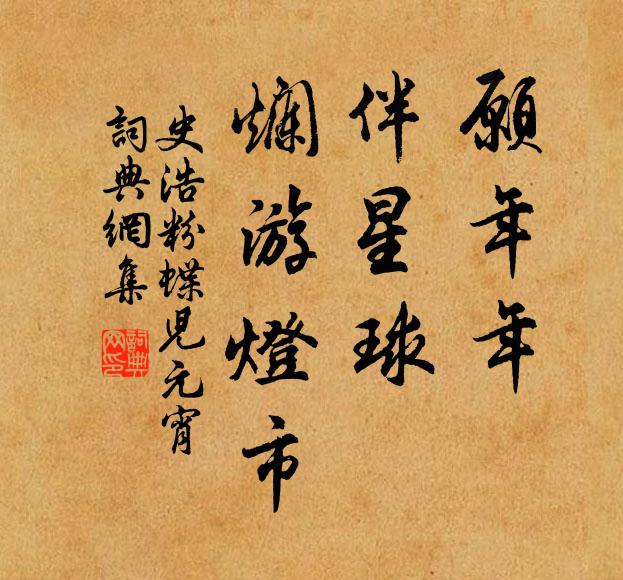 願年年
伴星球
爛游燈市
史浩粉蝶児元宵
詞典網集
詞典
网印